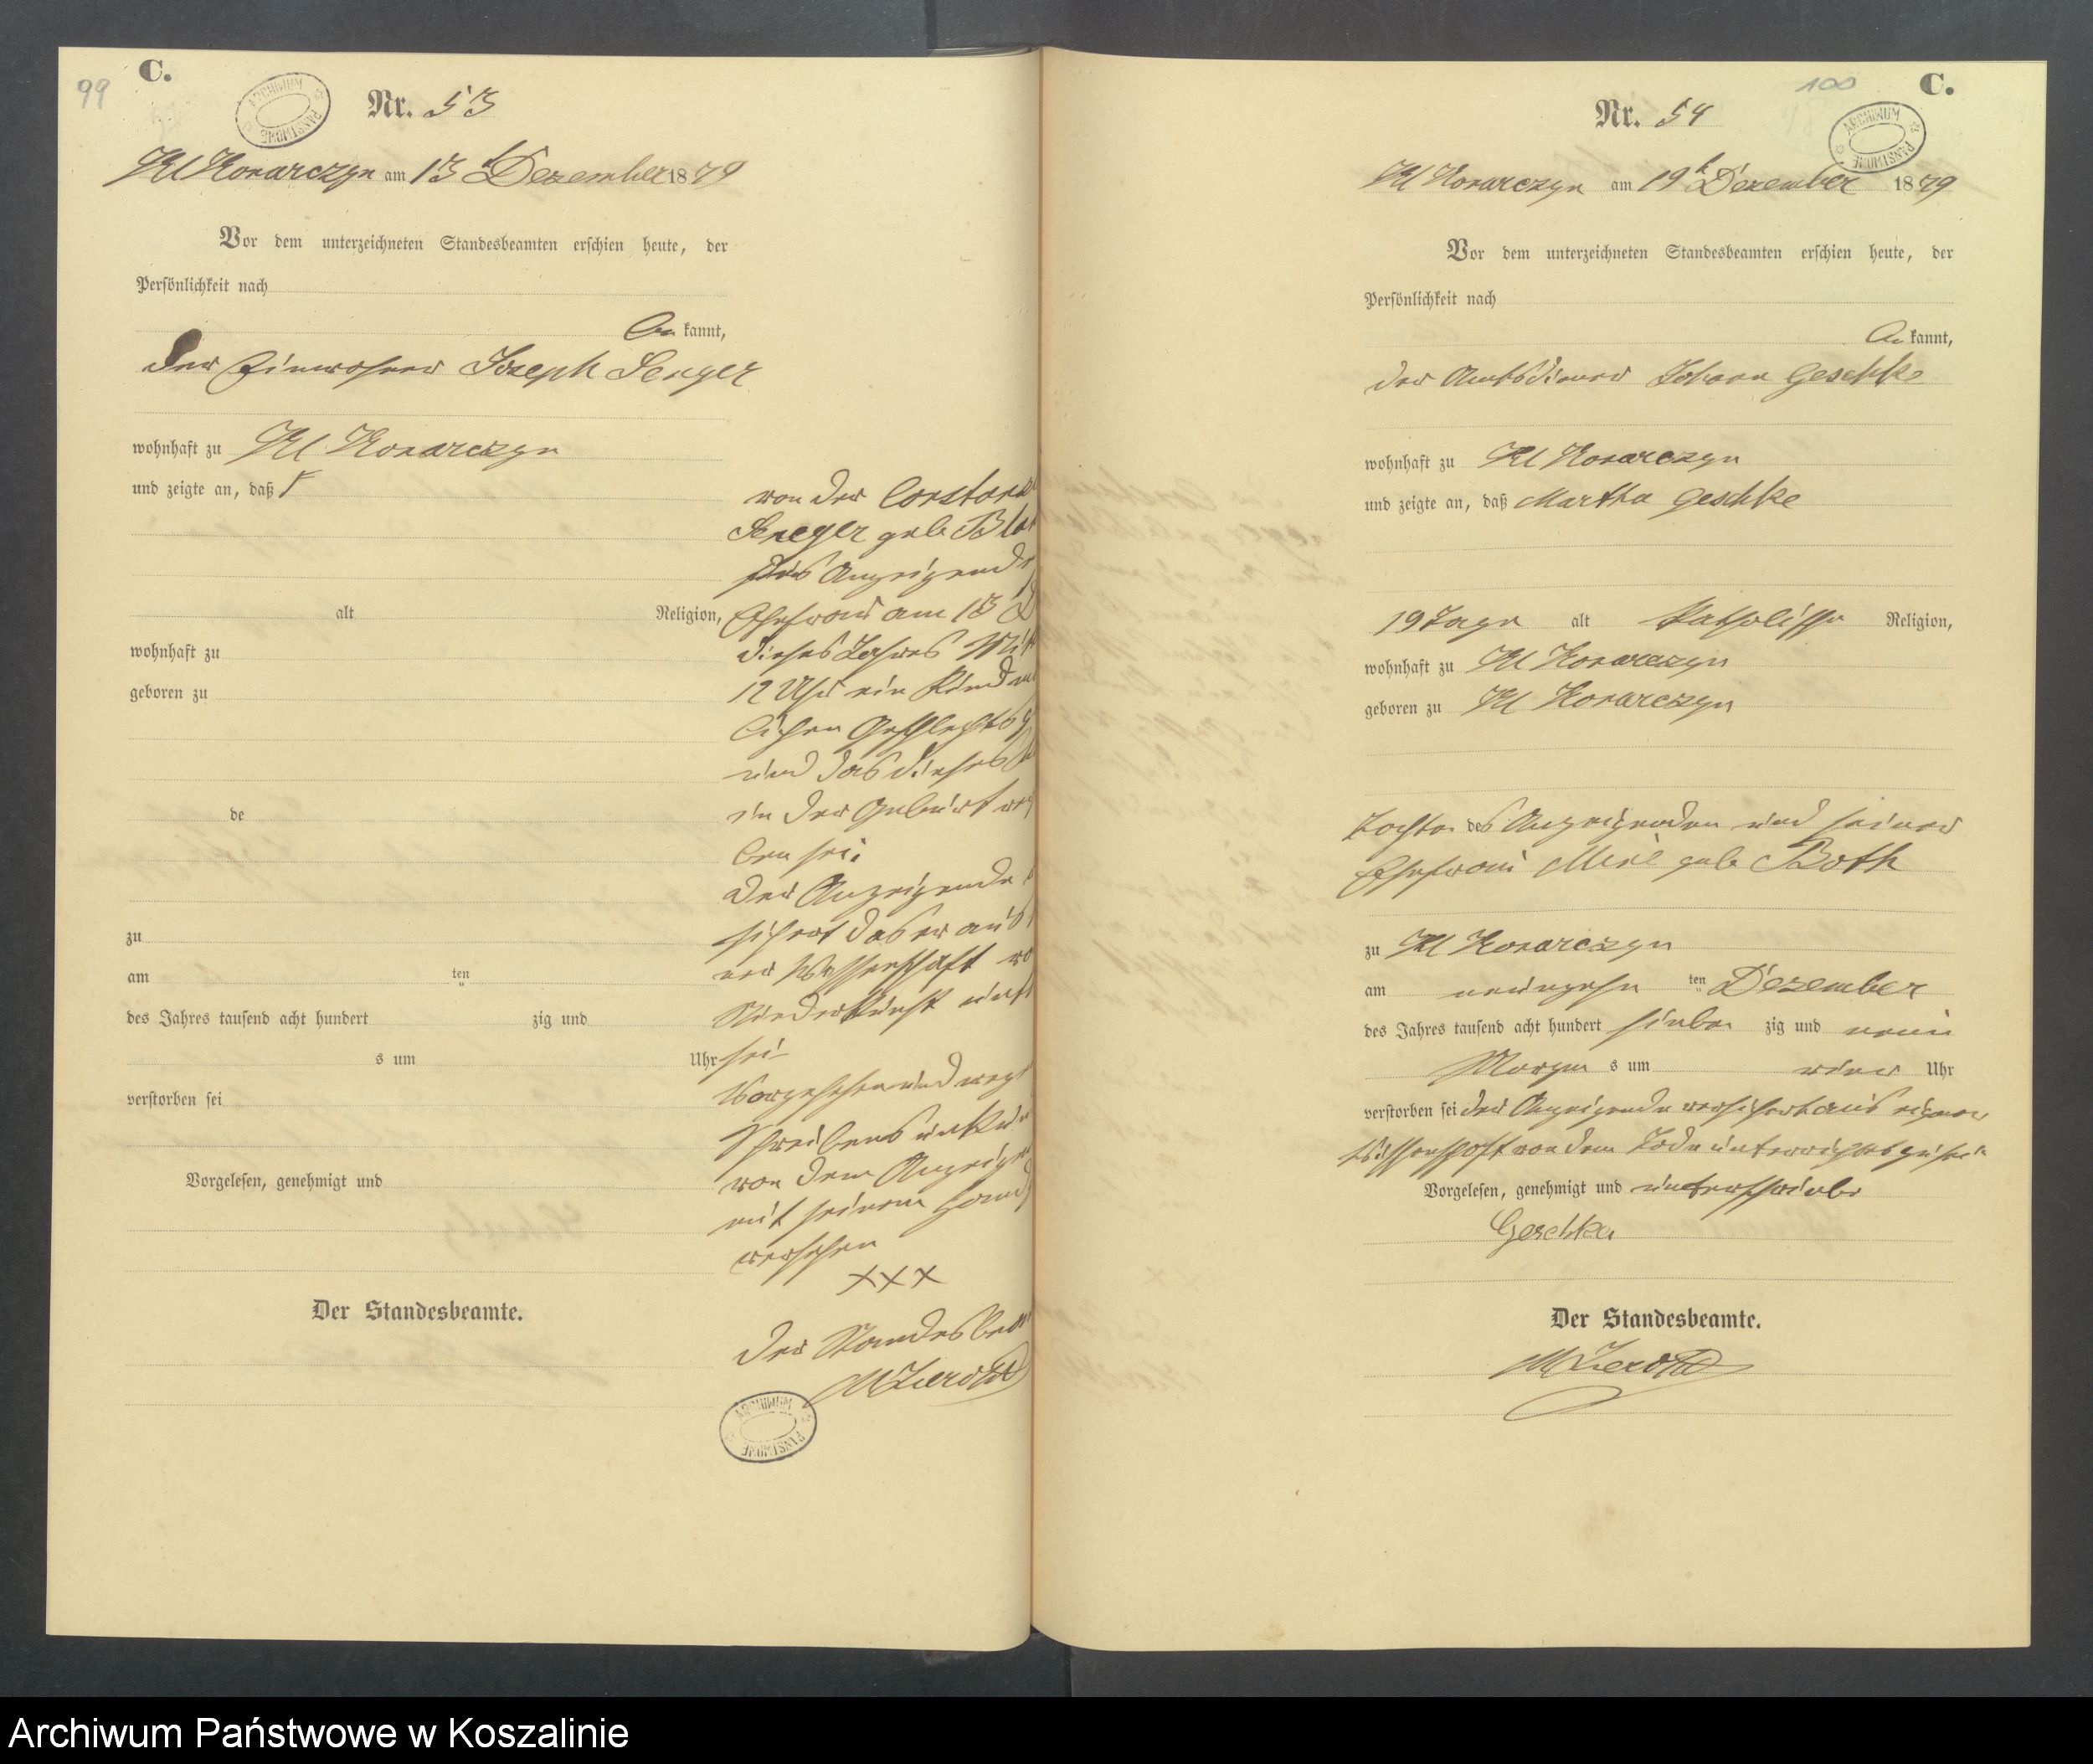 99
C.
ARCHIWUM PAŃSTWOWE
Nr. 53
Kl Konarczyn am 13 t Dezember 1879
Vor dem unterzeichneten Standesbeamten erschien heute, der
Persönlichkeit nach
be kannt,
der Einwohner Joseph Senger
wohnhaft zu Kl Konarczyn
und zeigte an, daß
alt Religion,
wohnhaft zu
geboren zu
de
zu
am ten
des Jahres tausend acht hundert zig und
s um Uhr
verstorben sei
Vorgelesen, genehmigt und
Der Standesbeamte.
von der
geb
des Anzeigenden
Ehefrau am 13
dieses Jahres
12 Uhr ein Kind
lichen Geschlechts
und das dieses
in der Geburt
ben sei.
Der Anzeigende
sichert das er aus
ner Wissenschaft
Niederkunft
sei
und
Schreibens
von dem
mit seinem
versehen
XXX
Der
ARCHIWUM PAŃSTWOWE
100
C.
ARCHIWUM PAŃSTWOWE
Nr. 54
Kl Konarczyn am 19 t Dezember 1879
Vor dem unterzeichneten Standesbeamten erschien heute, der
Persönlichkeit nach
be kannt,
der Amtsdiener Johann Geschke
wohnhaft zu Kl Konarczyn
und zeigte an, daß Martha Geschke
19 Tage alt katholischer Religion,
wohnhaft zu Kl Konarczyn
geboren zu Kl Konarczyn
Tochter des Anzeigenden und seiner
Ehefrau geb Both
zu Kl Konarczyn
am neunzehn ten Dezember
des Jahres tausend acht hundert sieben zig und neun
Morgen s um vier Uhr
verstorben sei der Anzeigende versichert aus eigener
Wissenschaft von dem Tode unterrichtet zu sein
Vorgelesen, genehmigt und unterschrieben
Geschke
Der Standesbeamte.
Archiwum Państwowe w Koszalinie